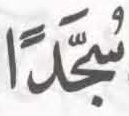 سُجَّدًا